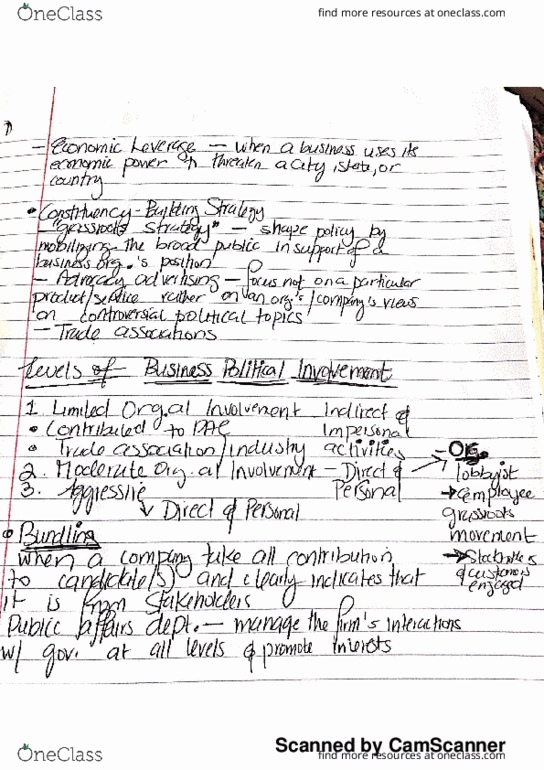 OneClass
find more resources at oneclass.com
- Economic Leverage - when a business uses its
economic power to threaten a city, state, or
country
• Constituency-Building Strategy
- "grassroots strategy" - shape policy by
mobilizing the broad public in support of a
business org.'s position
- Advocacy advertising - focus not on a particular
product/service rather on an org's/company's views
on controversial political topics
- Trade associations
Levels of Business Political Involvement
1. Limited Org.al Involvement Indirect &
• Contributed to PAC Impersonal
• Trade association/industry activities
2. Moderate Org.al Involvement - Direct & Personal
3. Aggressive
↓ Direct & Personal
- Org.
lobbyist
→ employee
grassroots
movement
→ Stockholders
& customers
engaged
• Bundling
when a company take all contribution
to candidate(s) and clearly indicates that
it is from stakeholders
Public affairs dept. - manage the firm's interactions
w/ gov. at all levels & promote interests
Scanned by CamScanner
OneClass
find more resources at oneclass.com